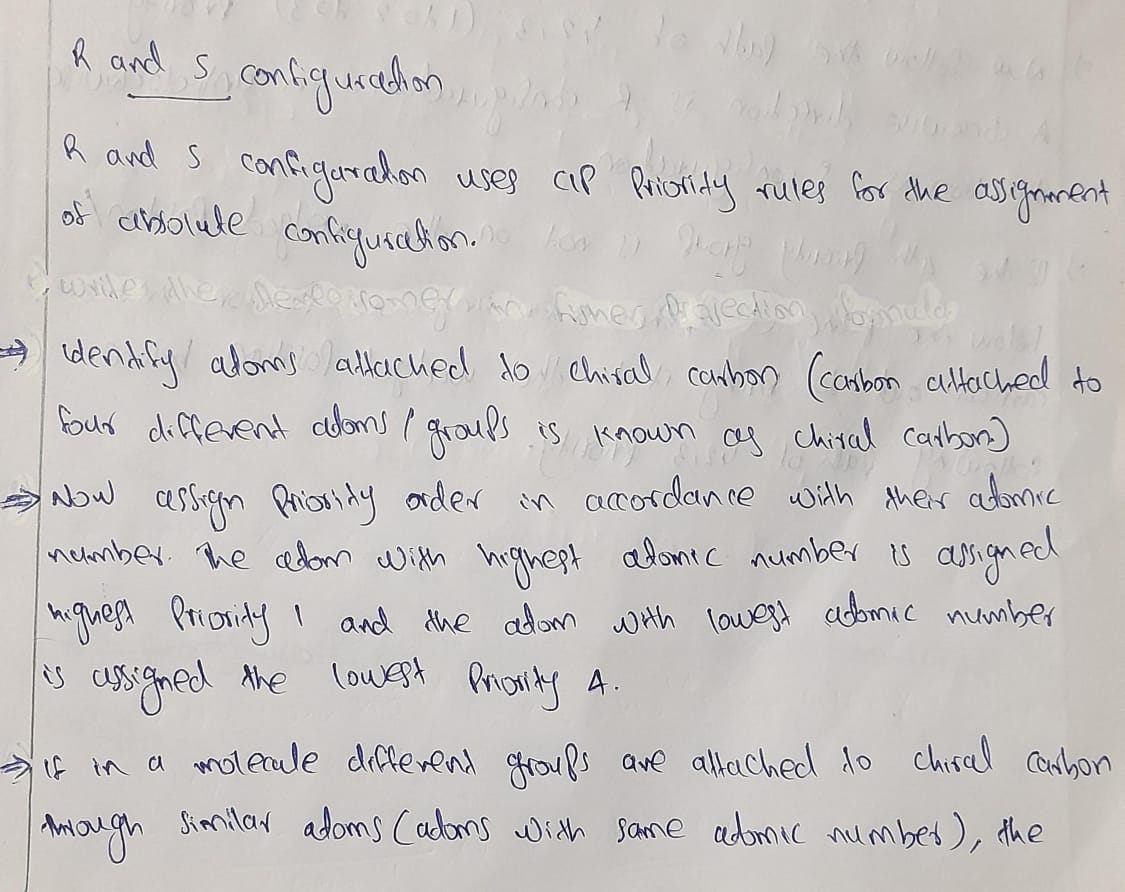 R and S configuration
R and S configuration uses CIP Priority rules for the assignment
of absolute configuration.
write the in fisher Projection formula
⇒ identify atoms attached to chiral carbon (carbon attached to
four different atoms / groups is known as chiral carbon)
⇒ Now assign Priority order in accordance with their atomic
number. The atom with highest atomic number is assigned
highest Priority 1 and the atom with lowest atomic number
is assigned the lowest Priority 4.
⇒ if in a molecule different groups are attached to chiral carbon
through similar atoms (atoms with same atomic number), the